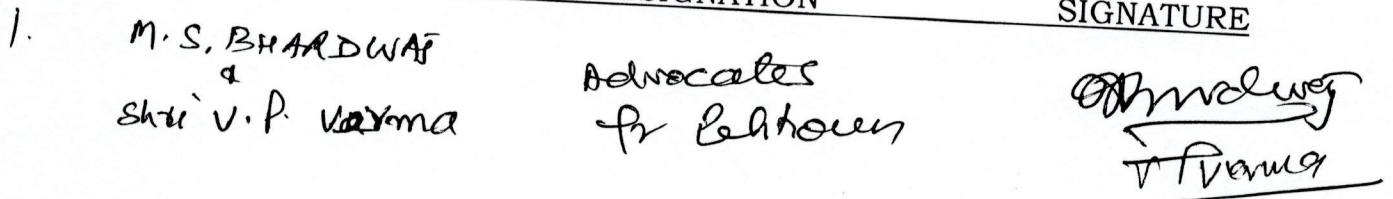 SIGNATURE
1. M. S. BHARDWAJ
&
Shri V. P. Varma
Advocates
fr Petitioners
Bhardwaj
V P Verma